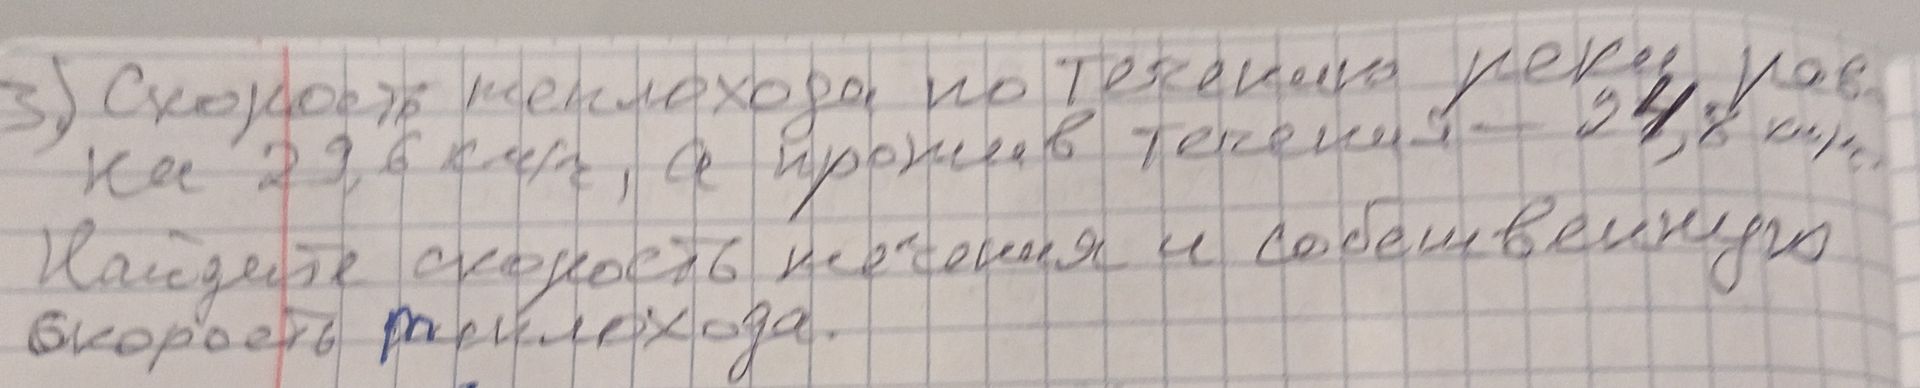 3) Скорость теплохода по течению реки рав-
на 29,6 км/ч, а против течения - 24,8 км/ч.
Найдите скорость течения и собственную
скорость теплохода.